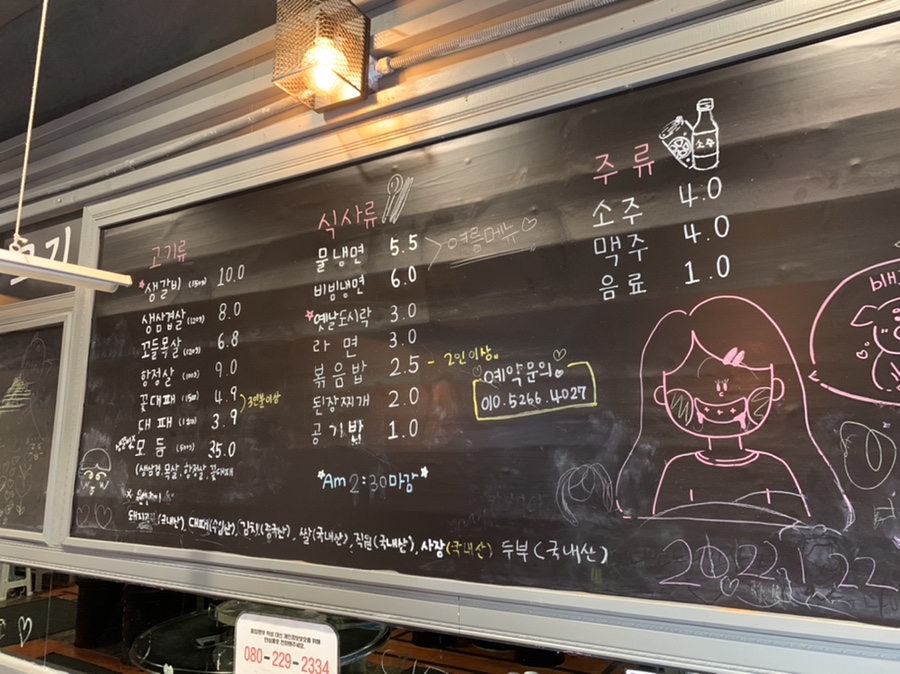 고기
고기류
*생갈비 (150g) 10.0
생삼겹살 (120g) 8.0
꼬들목살 (120g) 6.8
항정살 (100g) 9.0
꽃대패 (150g) 4.9
대패 3.9
>3인분이상
모듬 (600g) 35.0
(생삼겹, 목살, 항정살, 꽃대패
식사류
물냉면 5.5
비빔냉면 6.0
>여름메뉴♡
*옛날도시락 3.0
라면 3.0
볶음밥 2.5 - 2인이상
된장찌개 2.0
공기밥 1.0
*Am 2:30마감*
예약문의
010.5266.4027
주류
소주
소주 4.0
맥주 4.0
음료 1.0
(국내산), 대패(수입산), 김치(중국산), 쌀(국내산), 직원(국내산), 사장(국내산) 두부(국내산)
2022.1.22
080-229-2334